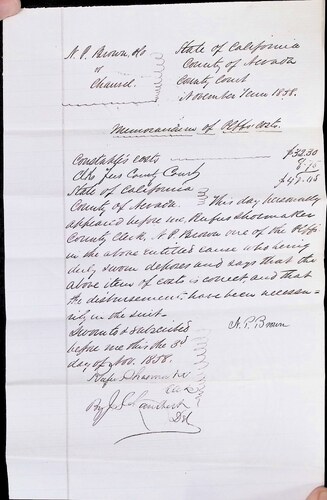 N. P. Brown, &Co
vs
State of California
County of Nevada
County Court
November Term 1858.
Memorandum of Plffs costs.
Constable's costs $32.30
Clks fees County Court 8.75
State of California
County of Nevada This day personally
appeared before me, Rufus Shoemaker
County Clerk, N. P. Brown one of the Plffs
in the above entitled cause who being
duly sworn deposes and says that the
above item of costs is correct, and that
the disbursements have been necessa-
rily in the suit.
Sworn to & subscribed
before me this the 3d
day of Nov. 1858.
N. P. Brown
Rufus Shoemaker
Clk
By J.